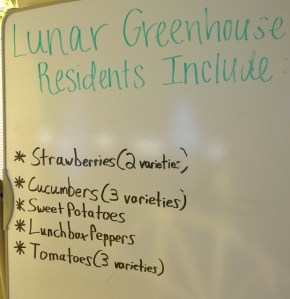 Lunar Greenhouse
Residents Include:
* Strawberries (2 varieties)
* Cucumbers (3 varieties)
* Sweet Potatoes
* Lunchbox Peppers
* Tomatoes (3 varieties)